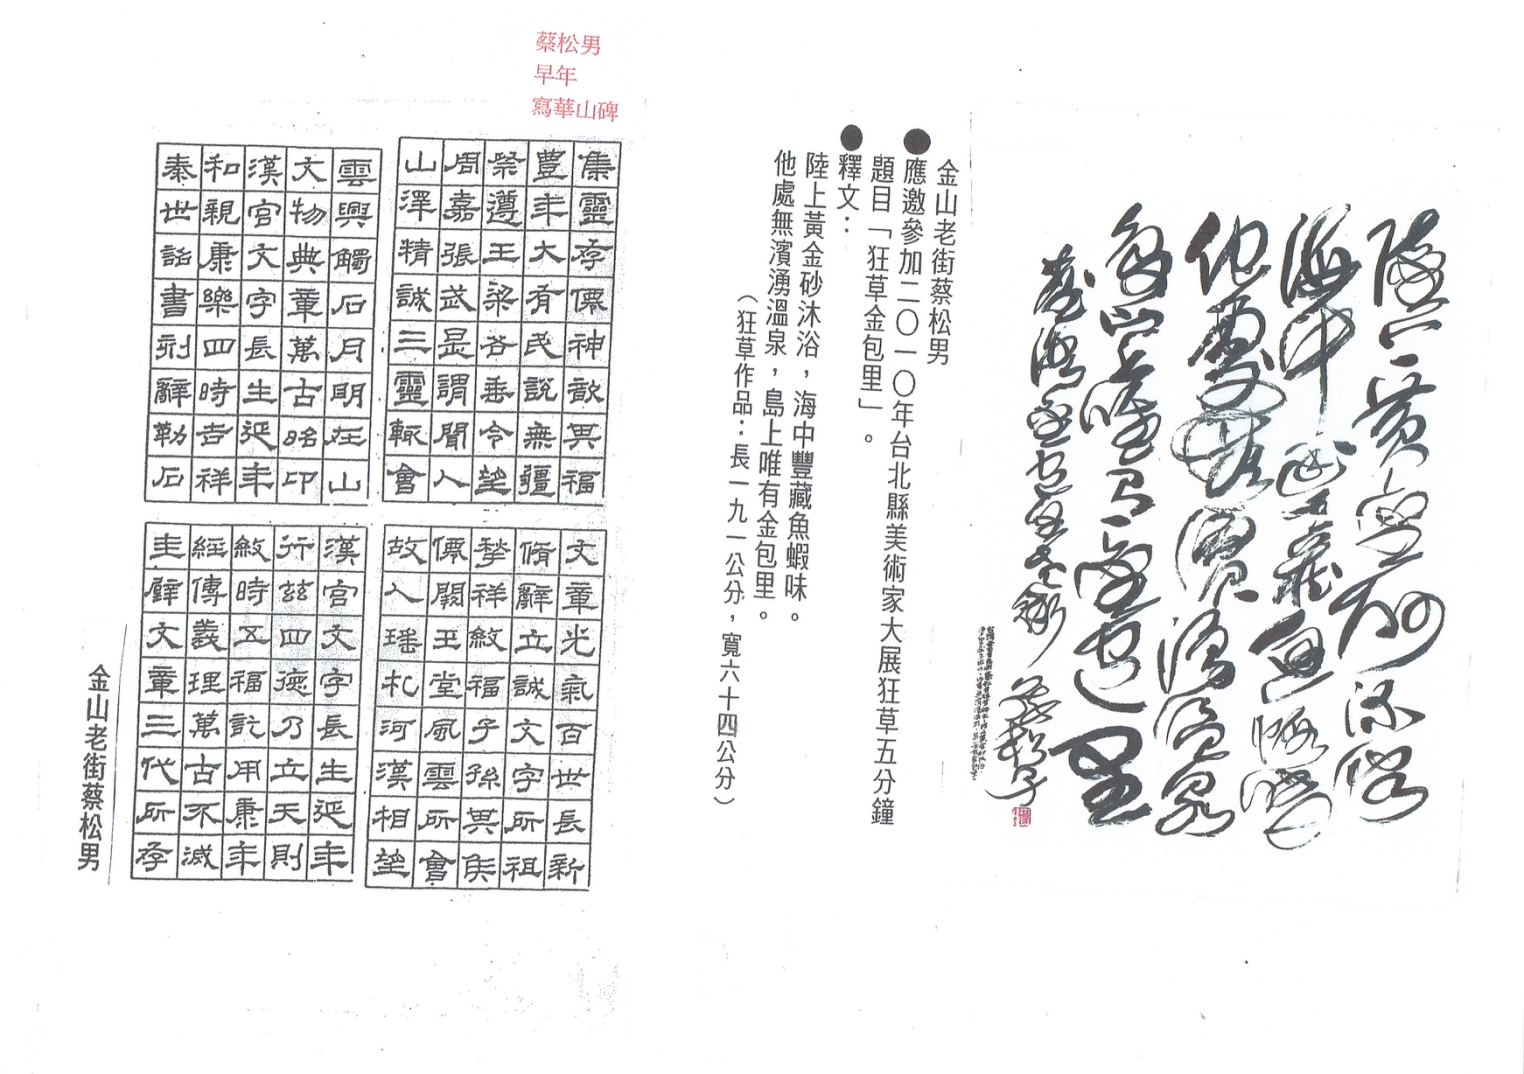 陸上黃金砂沐浴
海中豐藏魚蝦味
他處無濱湧溫泉
島上唯有金包里
臺灣金包里老街 蔡松男
金山老街蔡松男
●應邀參加二〇一〇年台北縣美術家大展狂草五分鐘
題目「狂草金包里」。
●釋文：
陸上黃金砂沐浴，海中豐藏魚蝦味。
他處無濱湧溫泉，島上唯有金包里。
（狂草作品：長一九一公分，寬六十四公分）
蔡松男
早年
寫華山碑
集靈存僊神歆其福
豊年大有民說無疆
祭遵王梁谷垂令望
周嘉張武是謂聞人
山澤精誠三靈輒會
雲興觸石月明在山
文物典章萬古昭印
漢宮文字長生延年
和親康樂四時吉祥
秦世詔書刻辭勒石
文章光氣百世長新
脩辭立誠文字所祖
孳祥敘福子孫其矦
僊闕玉堂風雲所會
故人瑤札河漢相望
漢宮文字長生延年
行茲四德乃立天則
敘時五福訖用康年
經傳義理萬古不滅
圭璧文章三代所存
金山老街蔡松男